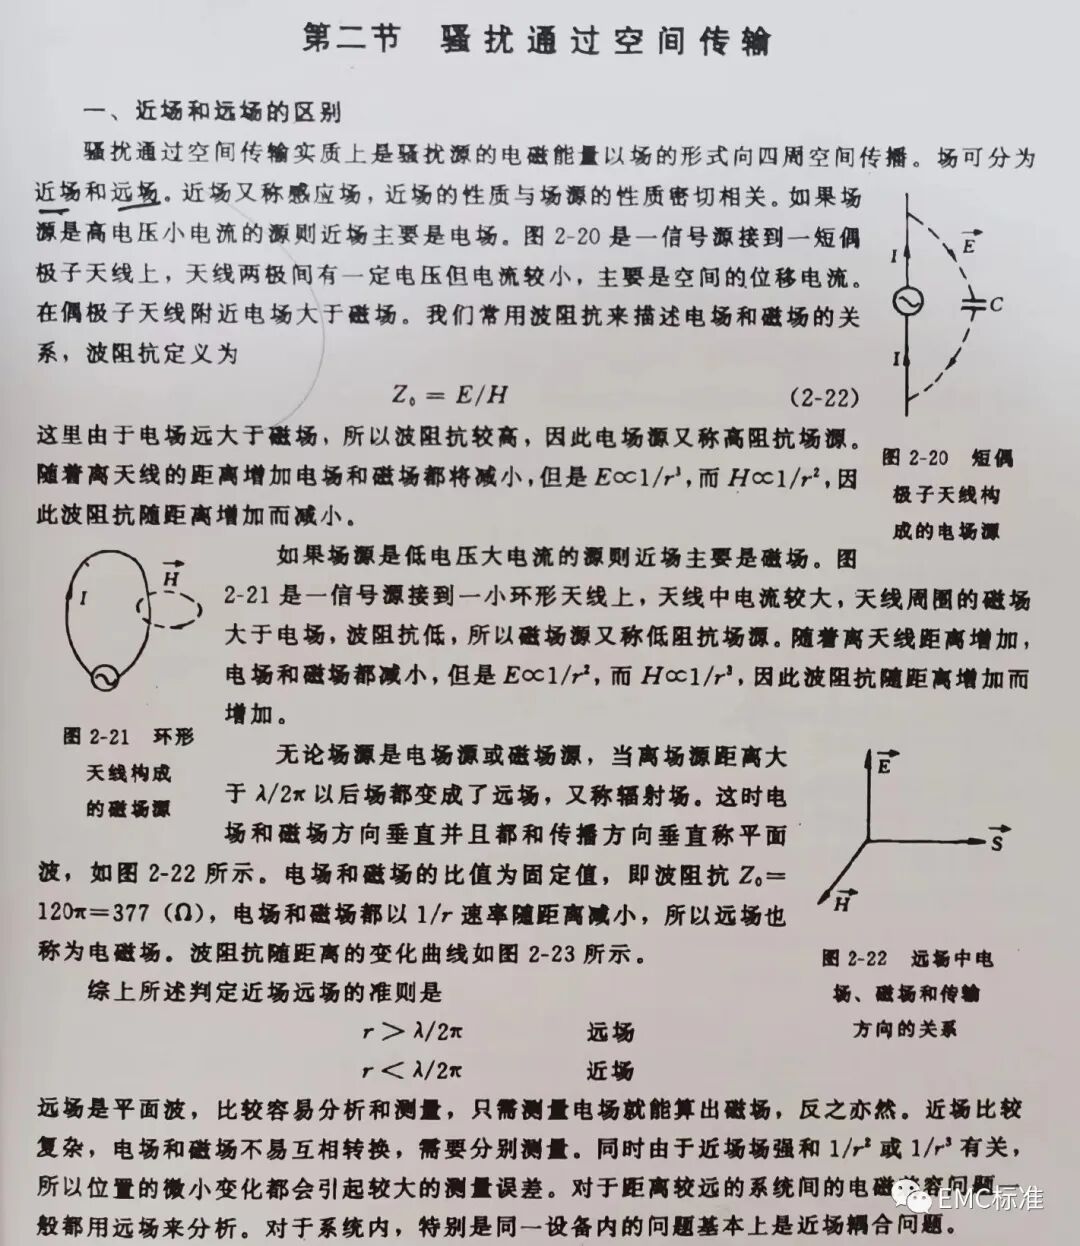 第二节 骚扰通过空间传输
一、近场和远场的区别
骚扰通过空间传输实质上是骚扰源的电磁能量以场的形式向四周空间传播。场可分为
近场和远场。近场又称感应场，近场的性质与场源的性质密切相关。如果场
源是高电压小电流的源则近场主要是电场。图 2-20 是一信号源接到一短偶
极子天线上，天线两极间有一定电压但电流较小，主要是空间的位移电流。
在偶极子天线附近电场大于磁场。我们常用波阻抗来描述电场和磁场的关
系，波阻抗定义为
Z₀ = E/H (2-22)
这里由于电场远大于磁场，所以波阻抗较高，因此电场源又称高阻抗场源。
随着离天线的距离增加电场和磁场都将减小，但是 E∝1/r³，而 H∝1/r²，因
此波阻抗随距离增加而减小。
I
E
C
I
图 2-20 短偶
极子天线构
成的电场源
如果场源是低电压大电流的源则近场主要是磁场。图
2-21 是一信号源接到一小环形天线上，天线中电流较大，天线周围的磁场
大于电场，波阻抗低，所以磁场源又称低阻抗场源。随着离天线距离增加，
电场和磁场都减小，但是 E∝1/r²，而 H∝1/r³，因此波阻抗随距离增加而
增加。
I
H
图 2-21 环形
天线构成
的磁场源
无论场源是电场源或磁场源，当离场源距离大
于 λ/2π 以后场都变成了远场，又称辐射场。这时电
场和磁场方向垂直并且都和传播方向垂直称平面
波，如图 2-22 所示。电场和磁场的比值为固定值，即波阻抗 Z₀=
120π=377（Ω），电场和磁场都以 1/r 速率随距离减小，所以远场也
称为电磁场。波阻抗随距离的变化曲线如图 2-23 所示。
E
S
H
图 2-22 远场中电
场、磁场和传输
方向的关系
综上所述判定近场远场的准则是
r > λ/2π 远场
r < λ/2π 近场
远场是平面波，比较容易分析和测量，只需测量电场就能算出磁场，反之亦然。近场比较
复杂，电场和磁场不易互相转换，需要分别测量。同时由于近场场强和 1/r² 或 1/r³ 有关，
所以位置的微小变化都会引起较大的测量误差。对于距离较远的系统间的电磁容问题一
般都用远场来分析。对于系统内，特别是同一设备内的问题基本上是近场耦合问题。
EMC标准